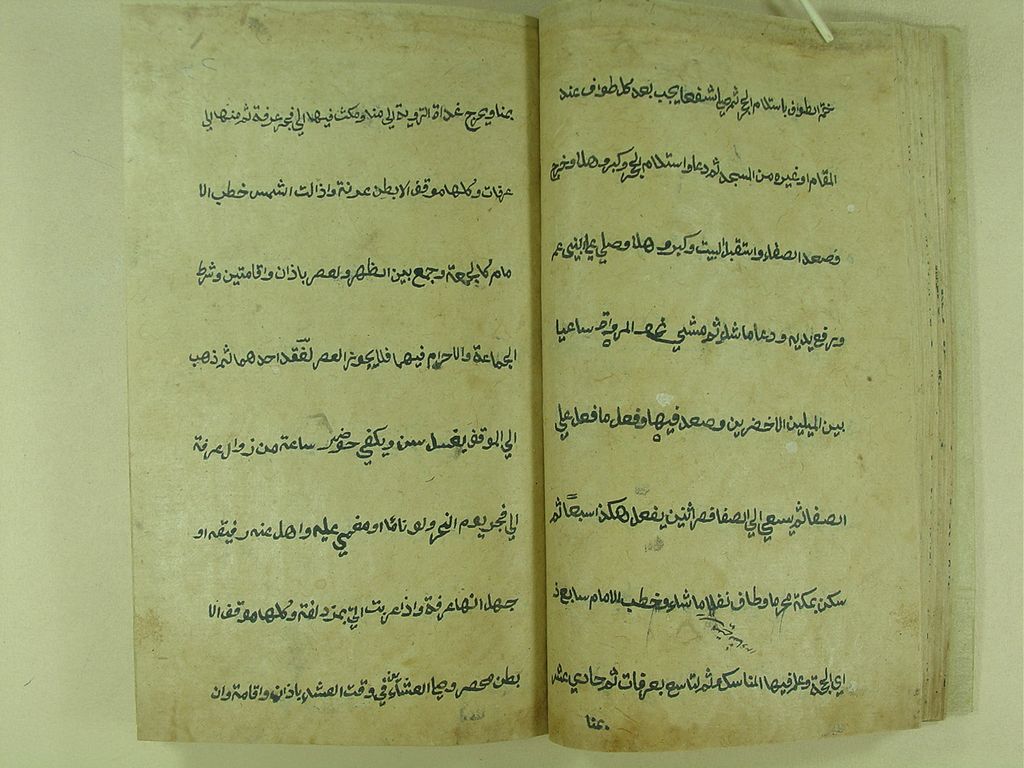 ختم الطواف باستلام الحجر ثم صلي اشفعا يجب بعد كل طواف عند
المقام او غيره من المسجد ثم دعا واستلام الحجر وكبر وهلل وخرج
فصعد الصفاء واستقبل البيت وكبر وهلل وصلي علي النبي عم
ورفع يديه ودعا ماشاء ثم مشي نحو المروة ساعيا
بين الميلين الاخضرين وصعد فيها وفعل ما فعل علي
الصفا ثم يسعي الي الصفا فصر اثنين يفعل هكذا سبعًا ثم
سكن بمكة محرما وطاف نفلا ماشاء وخطب الامام سابع ذ
اي الحجة وعلم فيها المناسك ثم لتاسع بعرفات ثم حادي عشر
بمنا
بمنا ويخرج غداة التروية الي منه ومكث فيها الي فجر عرفة ثم منها الي
عرفات وكلها موقف الا بطن عرنة واذا زالت الشمس خطب الا
مام كالجمعة وجمع بين الظهر ولعصر باذان واقامتين وشرط
الجماعة والاحرام فيهما فلا يجوز العصر لفقد احدهما ثم ذهب
الي الموقف بغسل سن ويكفي حضور ساعة من زوال عرفة
الي فجر يوم النحر ولو نائما او مغمي عليه واهل عنه رفيقه او
جهل انها عرفة واذا غربت اتي بمزدلفة وكلها موقف الا
بطن محصر وصلي العشائين في وقت العشاء باذان واقامة وان